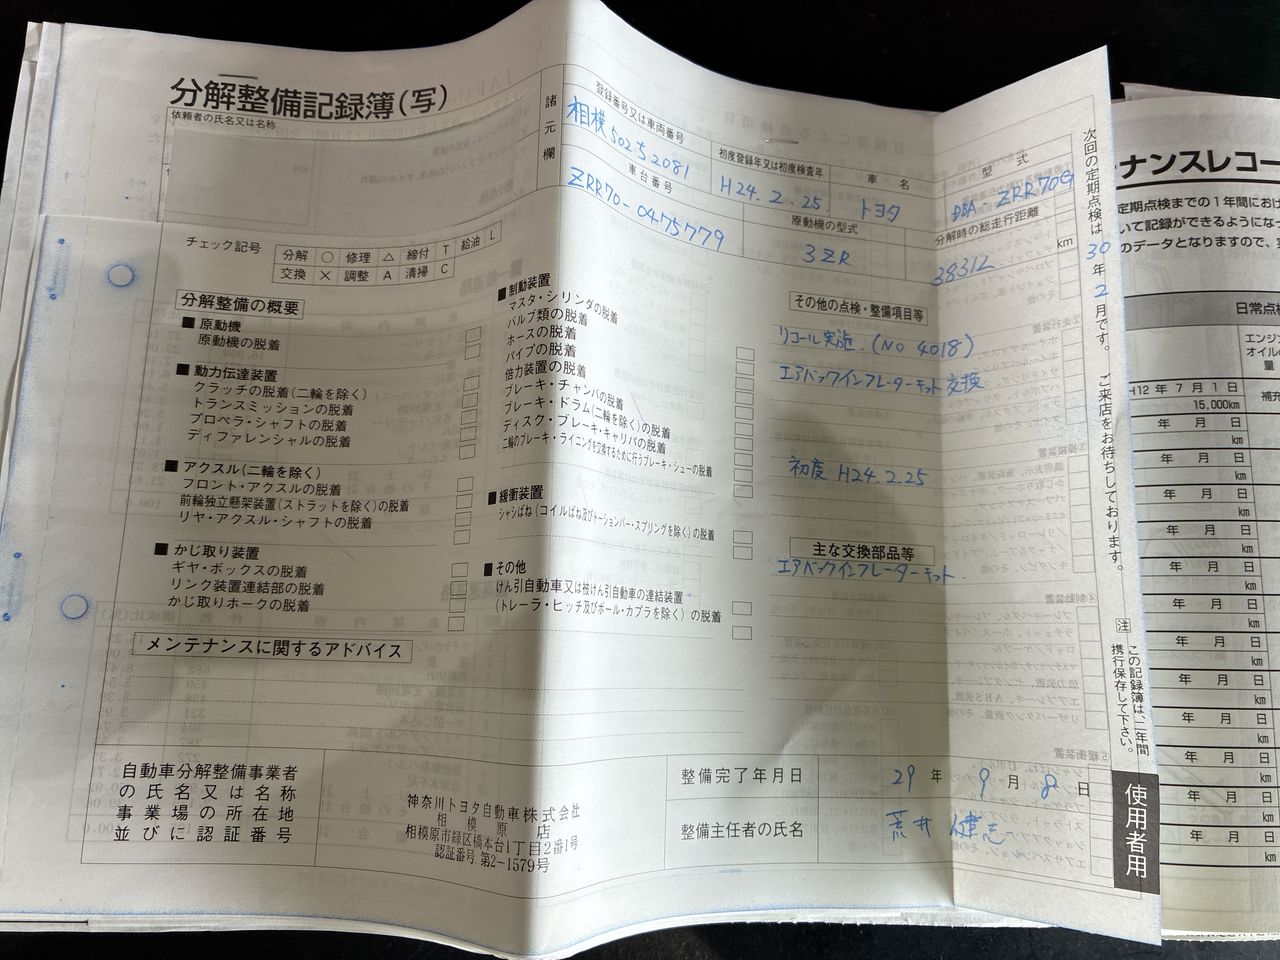 分解整備記録簿(写)
依頼者の氏名又は名称
諸元欄
登録番号又は車両番号
相模502す2081
初度登録年又は初度検査年
H24.2.25
車名
トヨタ
型式
DBA-ZRR70G
車台番号
ZRR70-0475779
原動機の型式
3ZR
分解時の総走行距離
38312 km
チェック記号
分解 ○ 修理 △ 締付 T 給油 L
交換 × 調整 A 清掃 C
分解整備の概要
■ 原動機
原動機の脱着
■ 動力伝達装置
クラッチの脱着(二輪を除く)
トランスミッションの脱着
プロペラ・シャフトの脱着
ディファレンシャルの脱着
■ アクスル(二輪を除く)
フロント・アクスルの脱着
前輪独立懸架装置(ストラットを除く)の脱着
リヤ・アクスル・シャフトの脱着
■ かじ取り装置
ギヤ・ボックスの脱着
リンク装置連結部の脱着
かじ取りホークの脱着
■ 制動装置
マスタ・シリンダの脱着
バルブ類の脱着
ホースの脱着
パイプの脱着
倍力装置の脱着
ブレーキ・チャンバの脱着
ブレーキ・ドラム(二輪を除く)の脱着
ディスク・ブレーキ・キャリパの脱着
二輪のブレーキ・ライニングを交換するために行うブレーキ・シューの脱着
■ 緩衝装置
シャシばね(コイルばね及びトーションバー・スプリングを除く)の脱着
■ その他
けん引自動車又は被けん引自動車の連結装置
(トレーラ・ヒッチ及びボール・カプラを除く)の脱着
その他の点検・整備項目等
リコール実施.(NO 4018)
エアバックインフレーターキット交換
初度 H24.2.25
主な交換部品等
エアバックインフレーターキット.
メンテナンスに関するアドバイス
自動車分解整備事業者
の氏名又は名称
事業場の所在地
並びに認証番号
神奈川トヨタ自動車株式会社
相模原店
相模原市緑区橋本台1丁目2番1号
認証番号 第2-1579号
整備完了年月日
29年9月8日
整備主任者の氏名
荒井 健志
次回の定期点検は30年2月です。ご来店をお待ちしております。
注 この記録簿は、二年間
携行保存して下さい。
使用者用
ナンスレコー
定期点検までの1年間におけ
いて記録ができるようになっ
のデータとなりますので、
日常点検
エンジン
オイルの
量
H12年7月1日
15,000km
補充
年 月 日
km
年 月 日
km
年 月 日
km
年 月 日
km
年 月 日
km
年 月 日
km
年 月 日
km
年 月 日
km
年 月 日
km
年 月 日
km
年 月 日
km
年 月 日
km